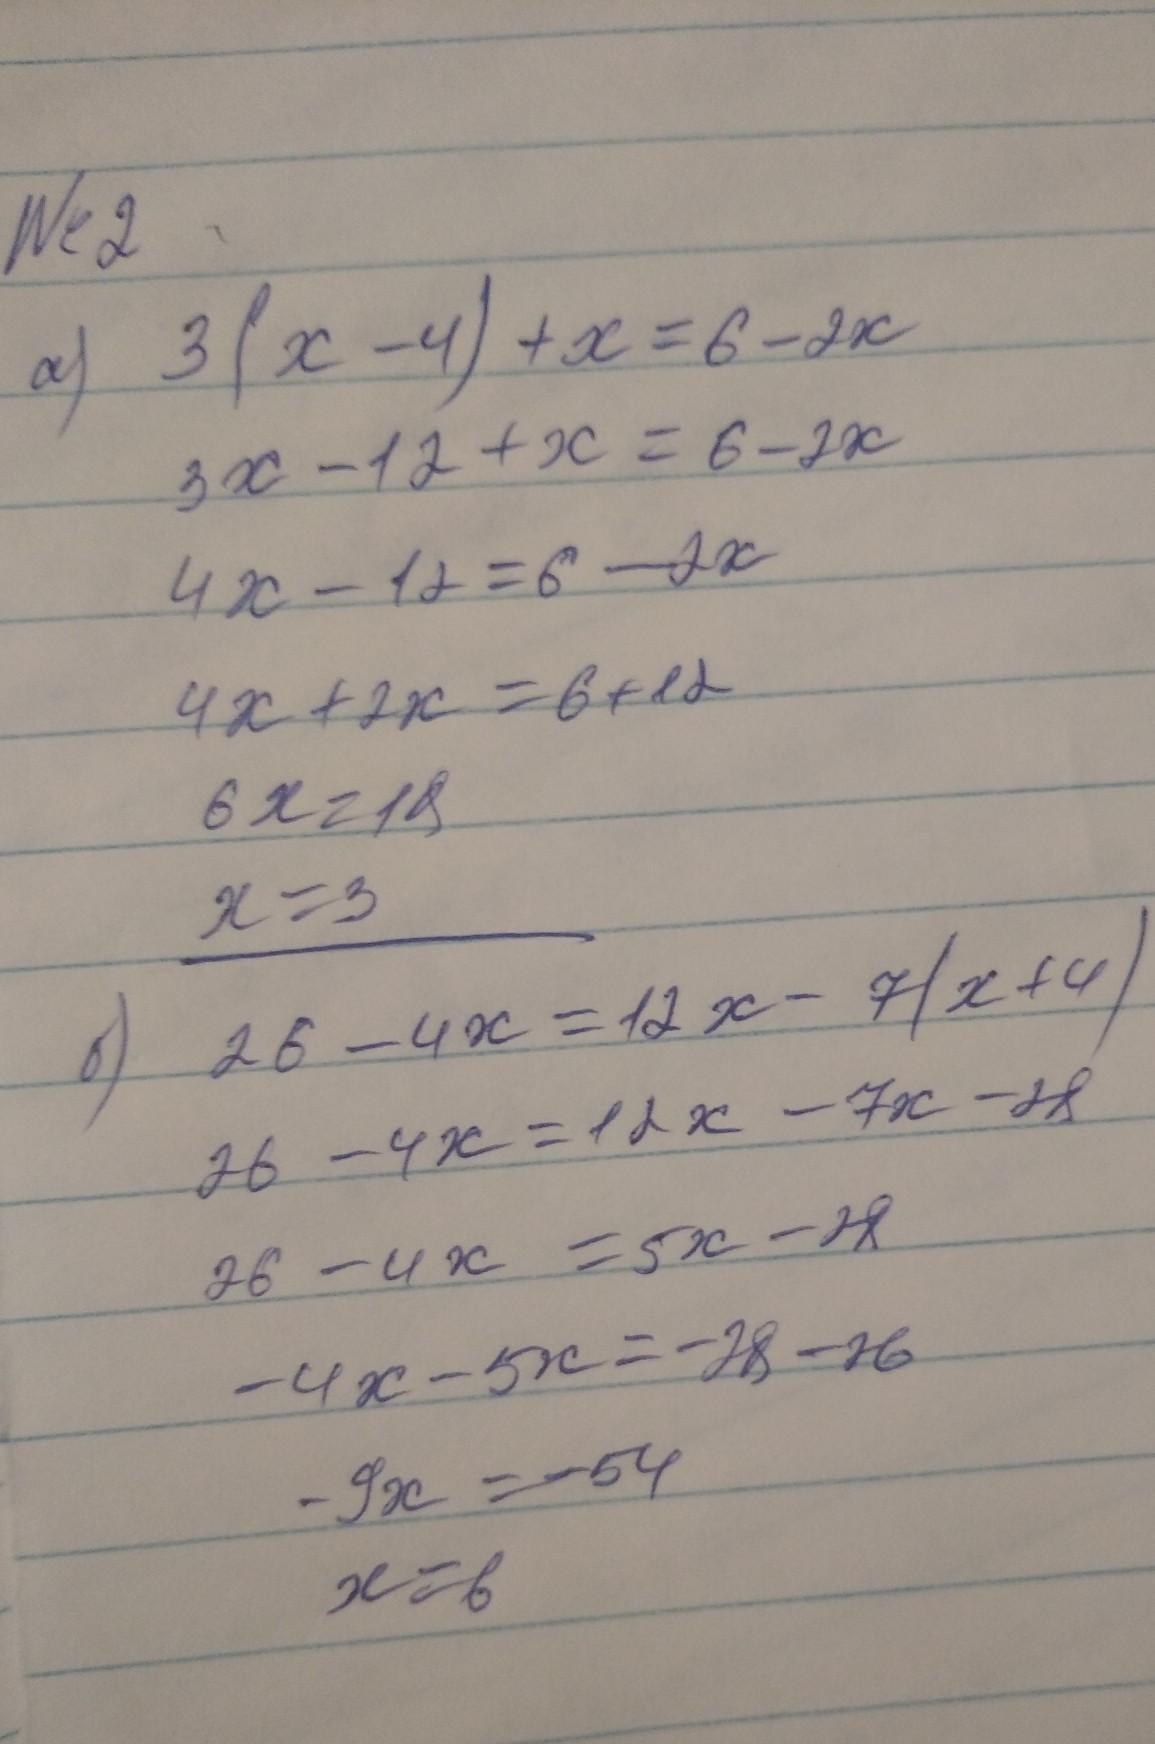 №2
а) 3(x-4)+x=6-2x
3x-12+x=6-2x
4x-12=6-2x
4x+2x=6+12
6x=18
x=3
б) 26-4x=12x-7(x+4)
26-4x=12x-7x-28
26-4x=5x-28
-4x-5x=-28-26
-9x=-54
x=6